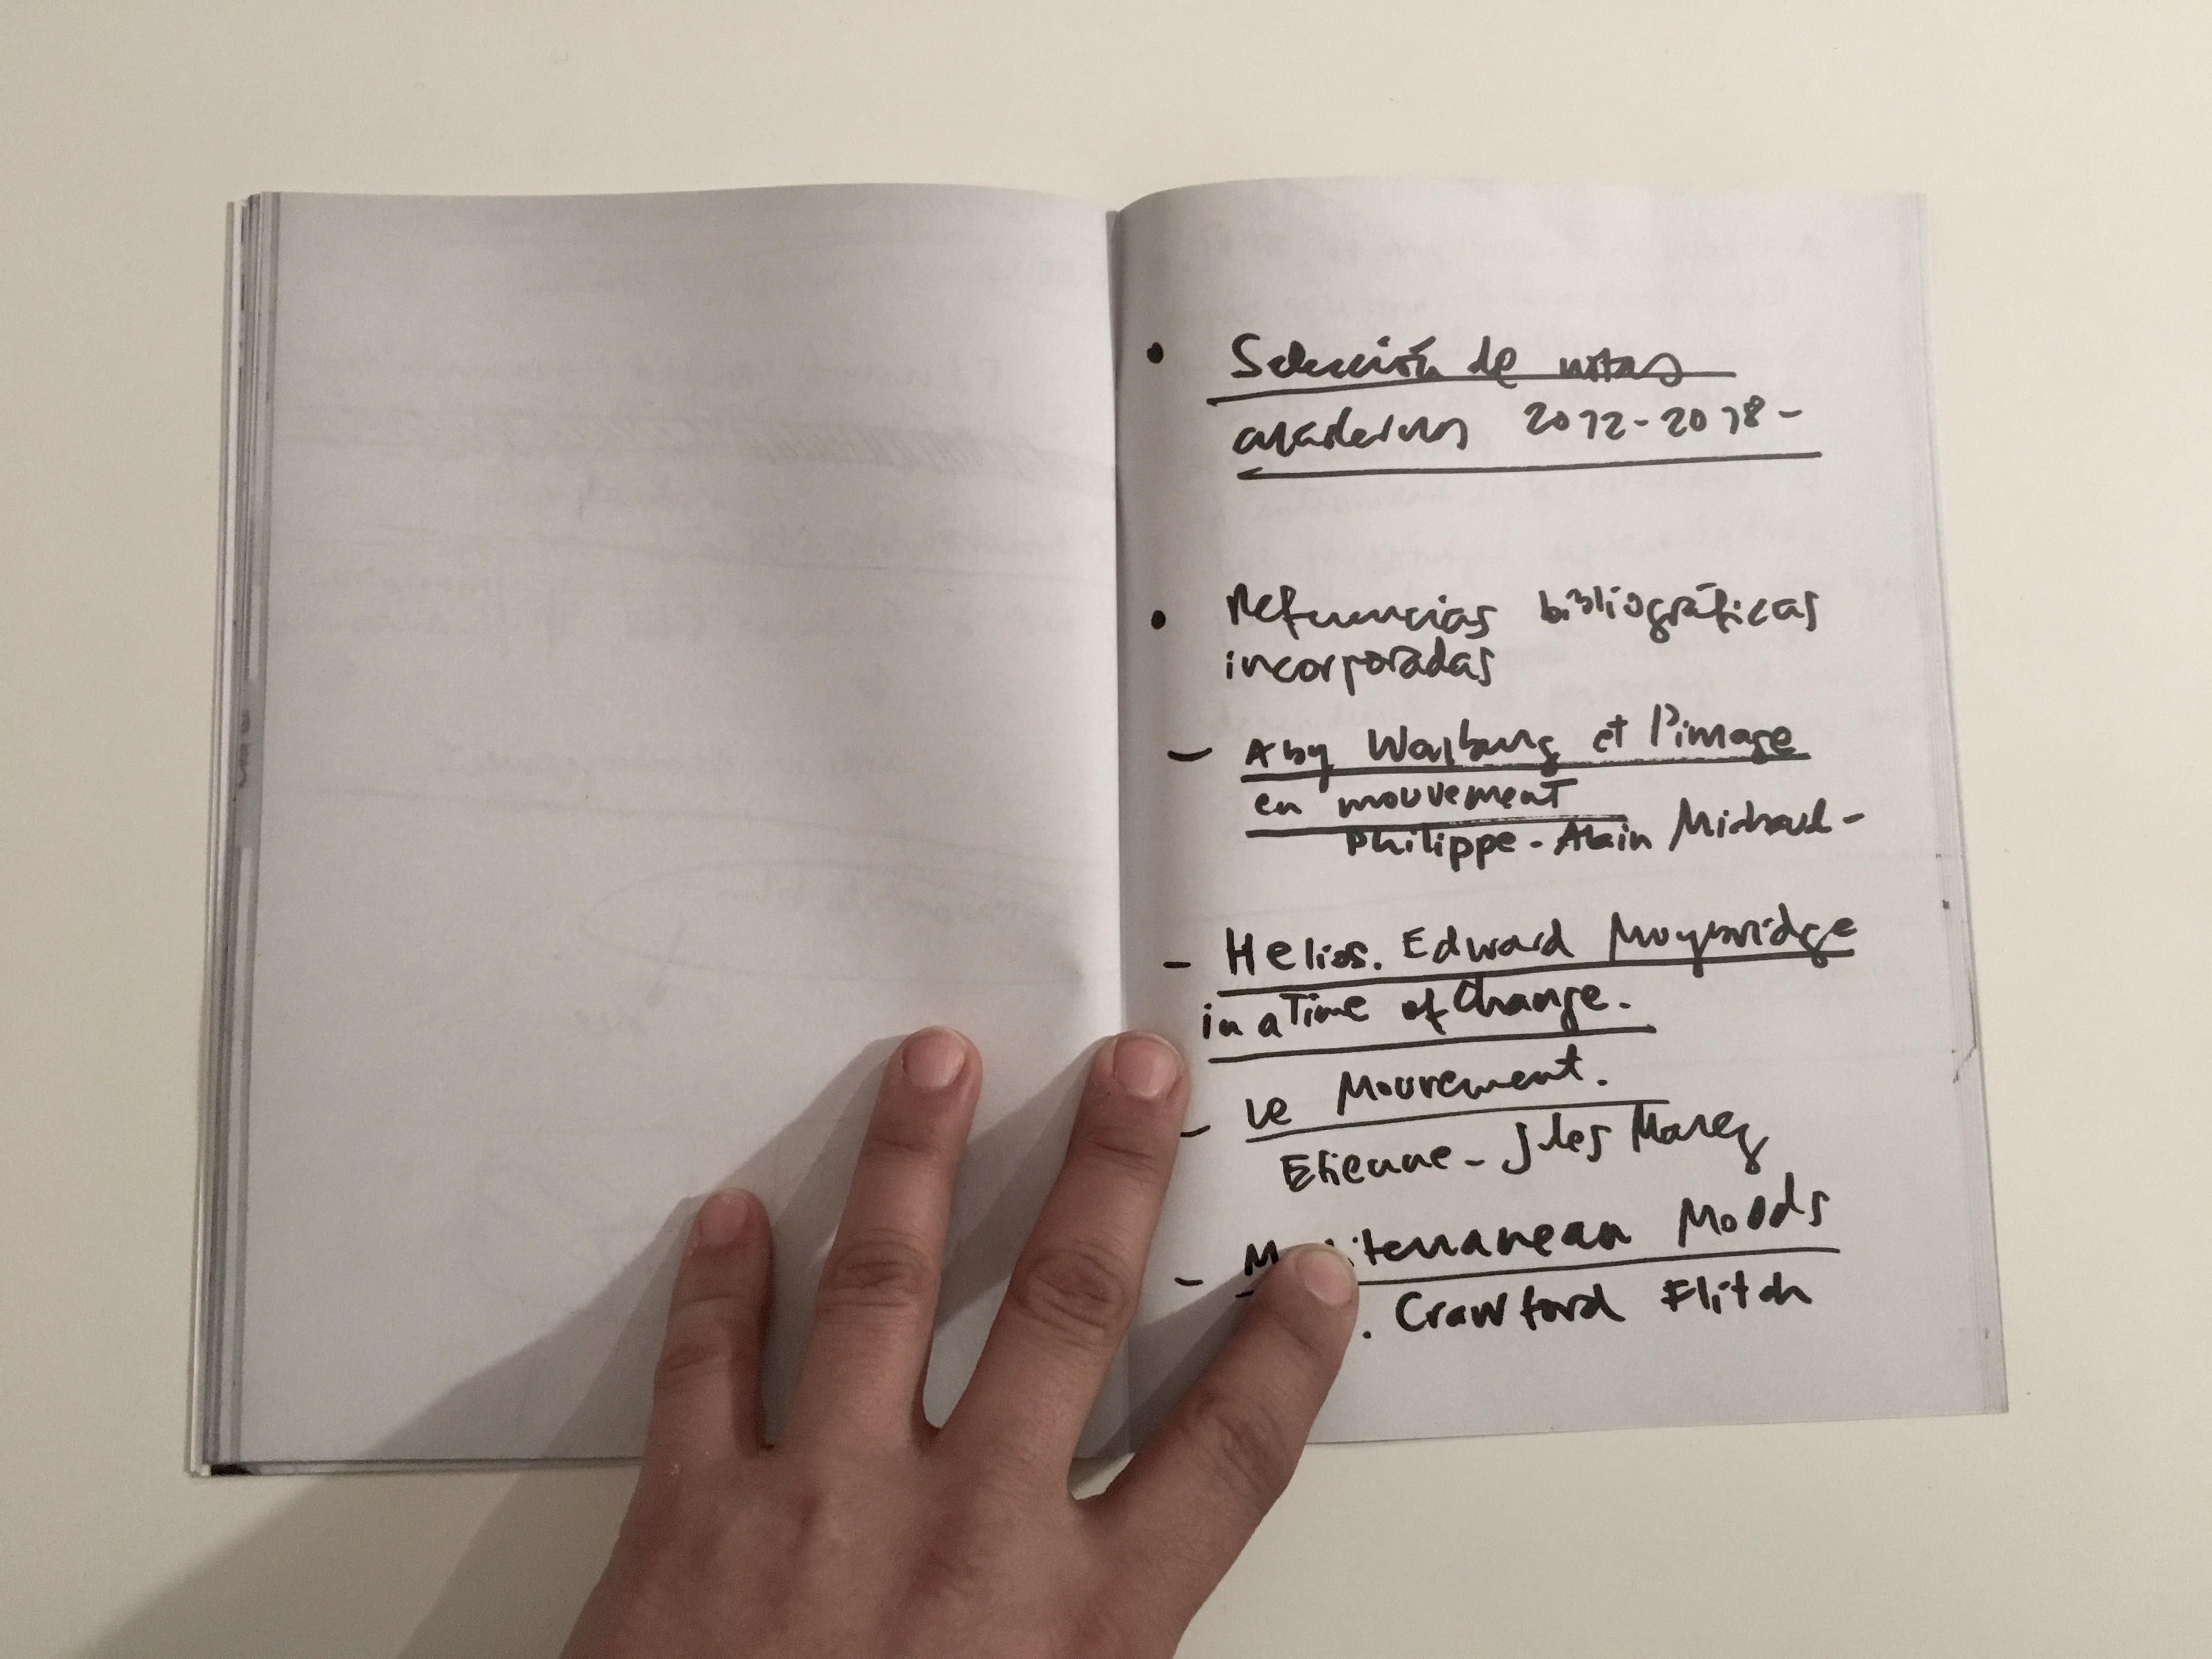 • Selección de notas
cuadernos 2012-2018-
• Referencias bibliográficas
incorporadas
- Aby Warburg et l'image
en mouvement
Philippe-Alain Michaud-
- Helios. Edward Muybridge
in a Time of Change.
- Le Mouvement.
Etienne-Jules Marey
- Mediterranean Moods
. Crawford Flitch